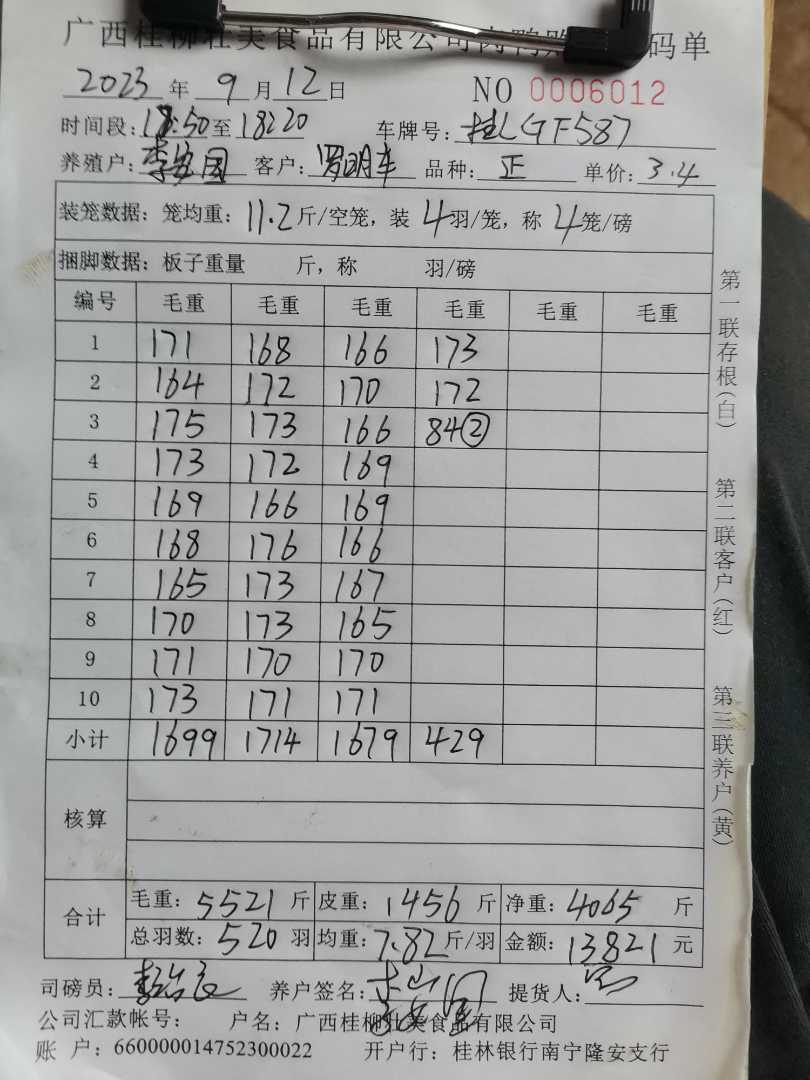 广西桂柳壮美食品有限公司肉鸭 码单
2023 年 9 月 12 日 NO 0006012
时间段: 至 18:20 车牌号: 桂LGF587
养殖户: 李 国 客户: 罗明车 品种: 正 单价: 3.4
装笼数据: 笼均重: 11.2 斤/空笼, 装 4 羽/笼, 称 4 笼/磅
捆脚数据: 板子重量 斤, 称 羽/磅
编号 毛重 毛重 毛重 毛重 毛重 毛重
1 171 168 166 173
2 164 172 170 172
3 175 173 166 84②
4 173 172 169
5 169 166 169
6 168 176 166
7 165 173 167
8 170 173 165
9 171 170 170
10 173 171 171
小计 1699 1714 1679 429
核算
合计 毛重: 5521 斤 皮重: 1456 斤 净重: 4065 斤
总羽数: 520 羽 均重: 7.82 斤/羽 金额: 13821 元
司磅员: 养户签名: 提货人:
公司汇款帐号: 户名: 广西桂柳壮美食品有限公司
账 户: 660000014752300022 开户行: 桂林银行南宁隆安支行
第一联存根(白) 第二联客户(红) 第三联养户(黄)